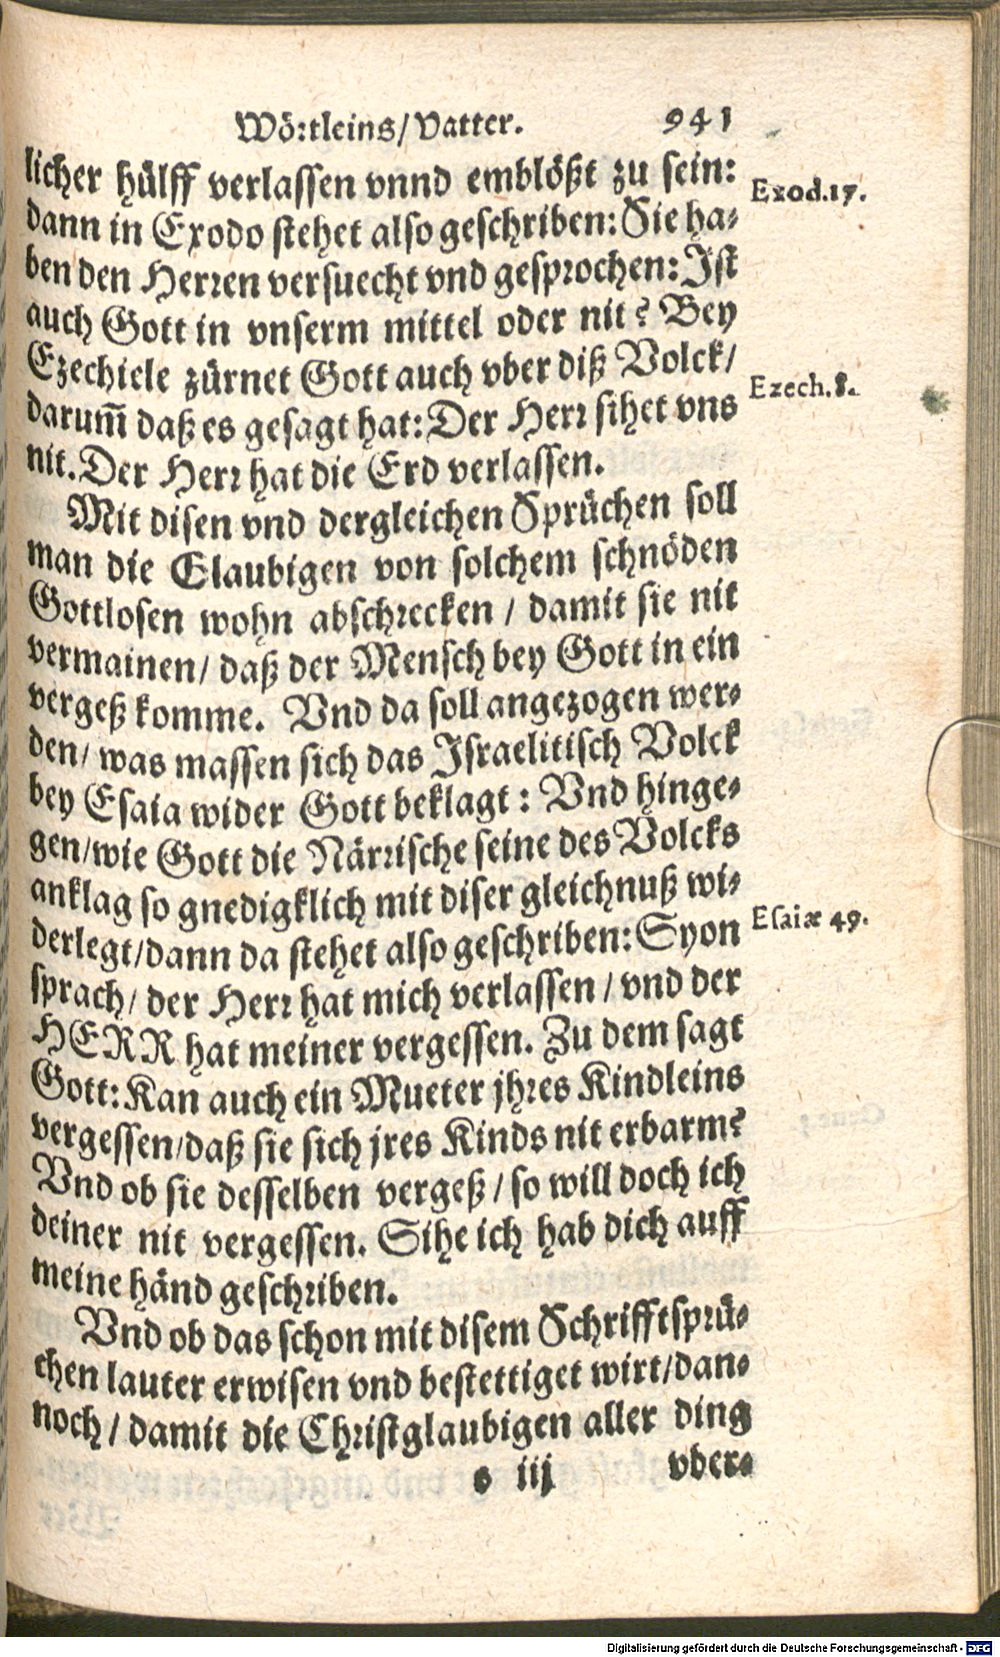 Wörtleins/Vatter. 941
licher hülff verlassen vnnd emblößt zu sein:
Exod.17.
dann in Exodo stehet also geschriben: Sie ha-
ben den Herren versuecht vnd gesprochen: Ist
auch Gott in vnserm mittel oder nit? Bey
Ezechiele zürnet Gott auch vber diß Volck/
Ezech.8.
darum̃ daß es gesagt hat: Der Herr sihet vns
nit. Der Herr hat die Erd verlassen.
Mit disen vnd dergleichen Sprüchen soll
man die Glaubigen von solchem schnöden
Gottlosen wohn abschrecken / damit sie nit
vermainen/ daß der Mensch bey Gott in ein
vergeß komme. Vnd da soll angezogen wer-
den/ was massen sich das Israelitisch Volck
bey Esaia wider Gott beklagt: Vnd hinge-
gen/wie Gott die Närrische seine des Volcks
anklag so gnedigklich mit diser gleichnuß wi-
derlegt/dann da stehet also geschriben: Syon
Esaiæ 49.
sprach/ der Herr hat mich verlassen / vnd der
HERR hat meiner vergessen. Zu dem sagt
Gott: Kan auch ein Mueter jhres Kindleins
vergessen/daß sie sich jres Kinds nit erbarm?
Vnd ob sie desselben vergeß / so will doch ich
deiner nit vergessen. Sihe ich hab dich auff
meine händ geschriben.
Vnd ob das schon mit disem Schrifftsprü-
chen lauter erwisen vnd bestettiget wirt/dan-
noch / damit die Christglaubigen aller ding
s iij vber-
Digitalisierung gefördert durch die Deutsche Forschungsgemeinschaft - DFG